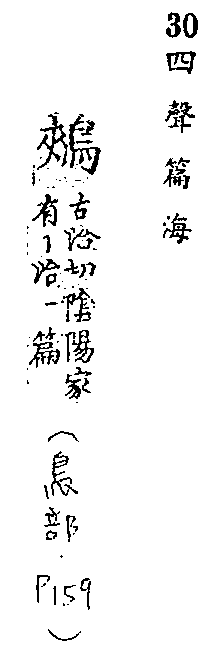 30 四聲篇海
鵊
古洽切隂陽家
有丨洽一篇
(鳥部.P159)